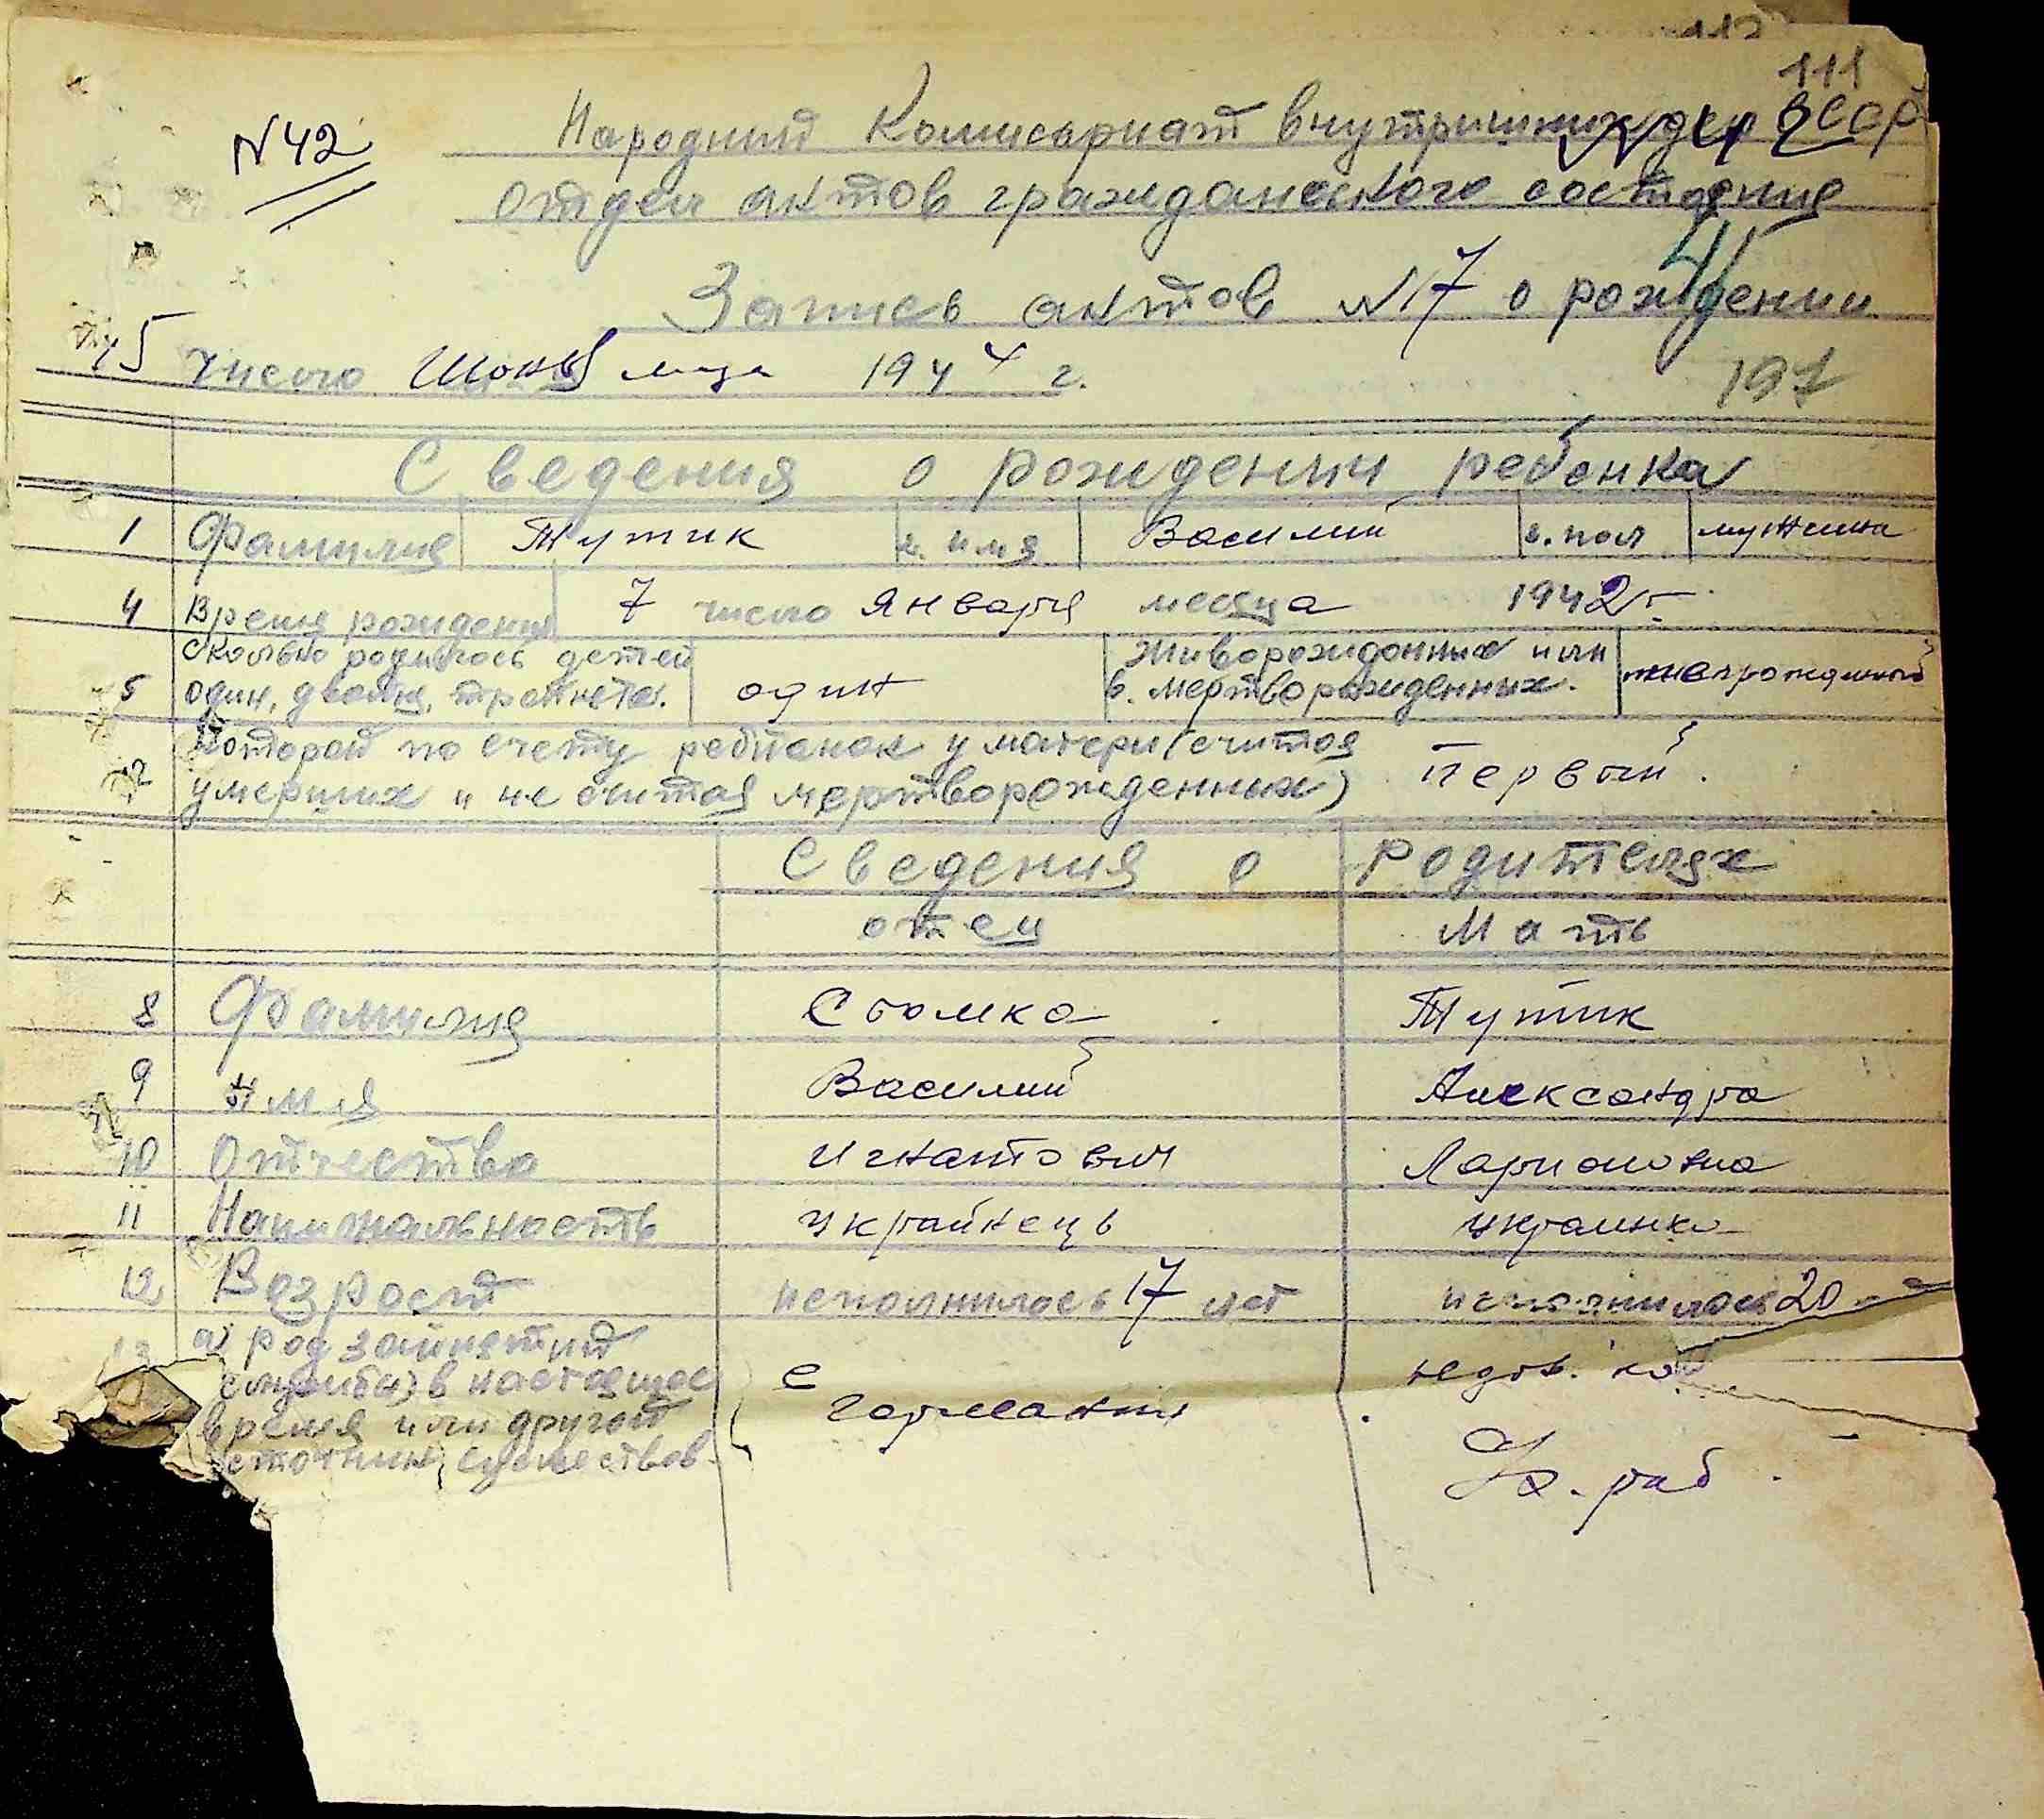 111
N 42
Народний Комисариат внутришних дел СССР
N 42
отдел актов гражданского состояния
41
Запись актов N 17 о рождении
15 число Июня м-ца 1944 г.
197
Сведения о рождении ребенка
1 Фамилия Тутик 2. имя Василий 3. пол мужчина
4 Время рождения 7 число Января месяца 1942 г.
5 Сколько родилось детей один, двойня, тройня один 6. Живорожденных или мертворожденных. живорожденный
7 Которой по счету ребионок у матери (считая
умерших и не считая мертворожденных) Первый.
Сведения о Родителях
отец Мать
8 Фамилия Сьомка Тутик
9 Имя Василий Александра
10 Отчество Игнатович Ларионовна
11 Национальность Украйнець Украинка
12 Возраст исполнилось 17 лет исполнилось 20
13 а) род занятий
в настоящее
время или другой
источник существов.
с
Германии
Чл. раб.